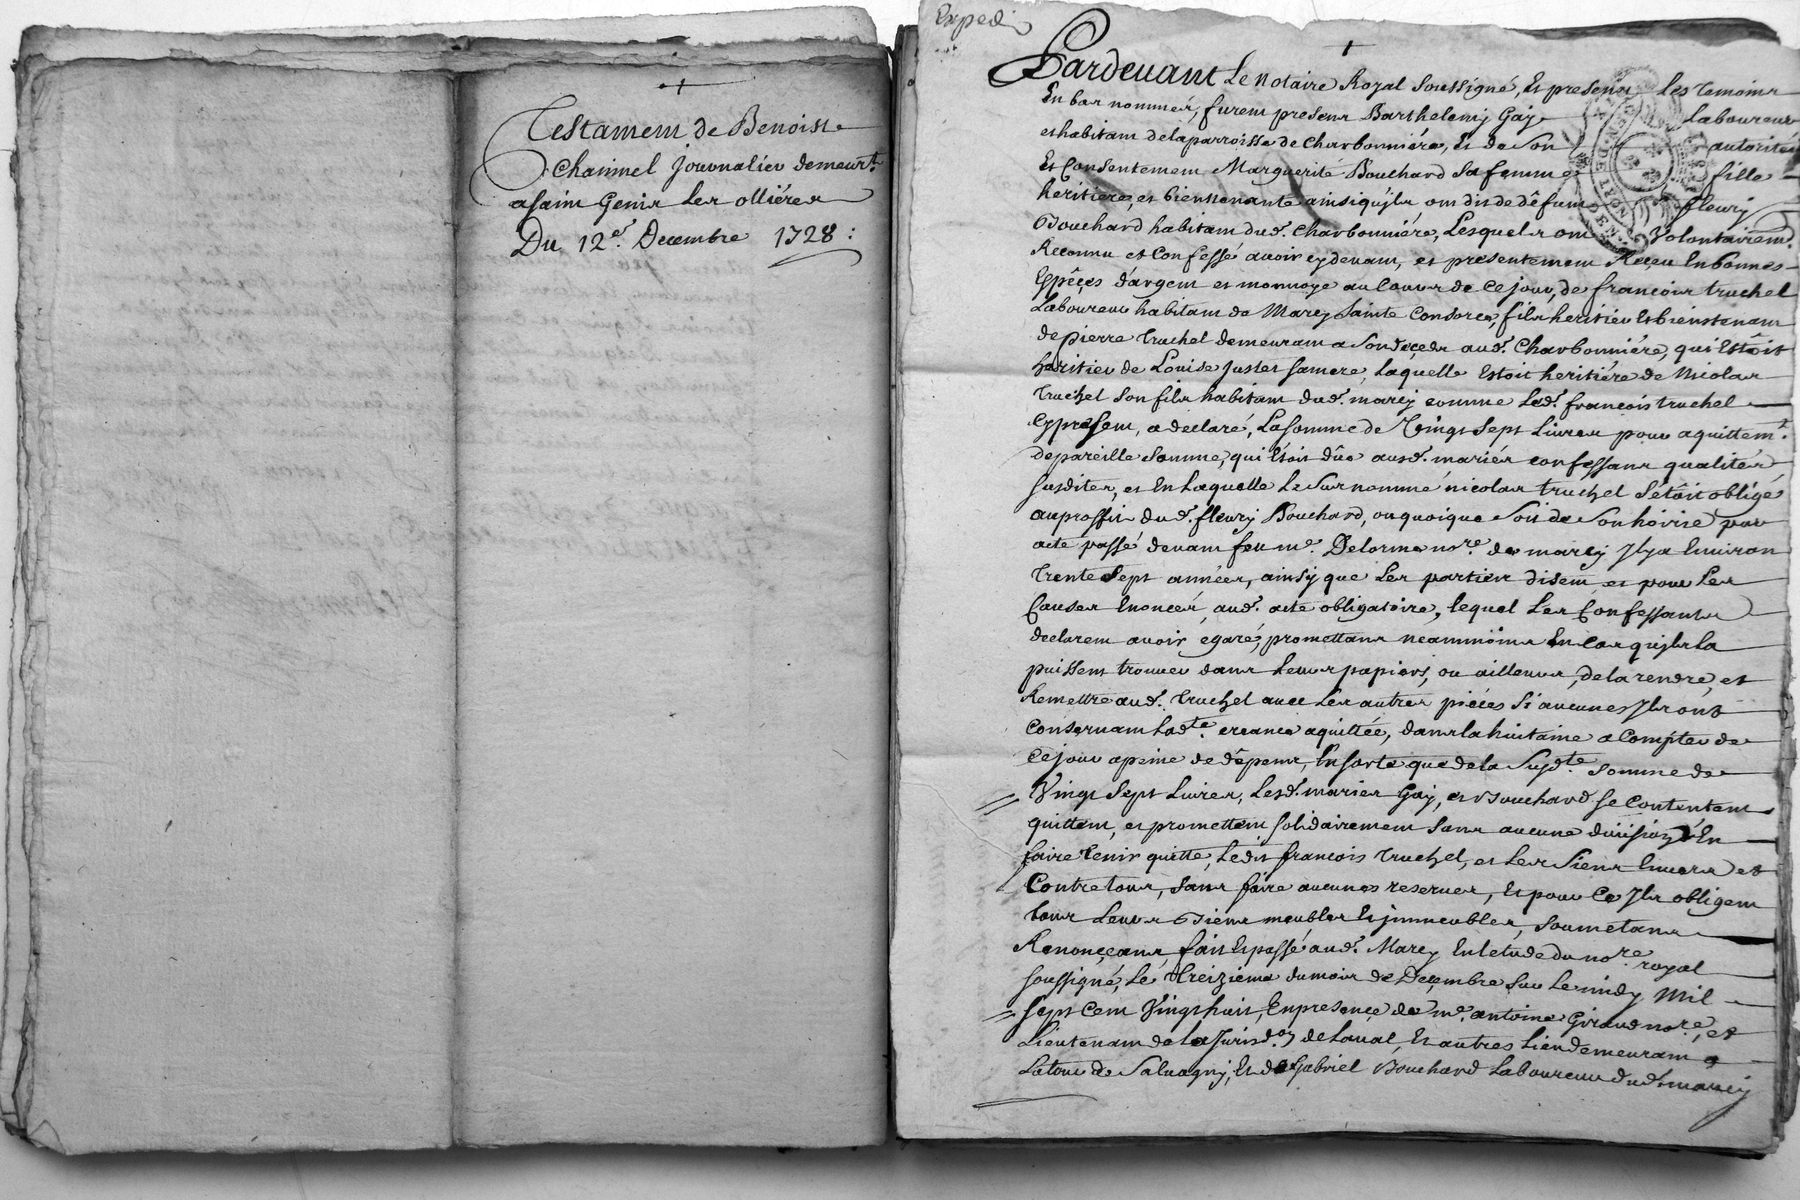 Testament de Benoist
Chaninel journalier demeurt.
a saint Genis les ollières
Du 12e. Decembre 1728 :
Expedi
Pardevant Le notaire Royal Soussigné, Et presents Les temoins
En bas nommés, furent presens Barthelemy Gay Laboureur
et habitant de la parroisse de Charbonniére, Et de Son autorité
Et Consentement Marguerite Bouchard Sa femme fille
heritiere, et bienstenante ainsi qu'jls ont dit de dêfunt fleury
Bouchard habitant dud. Charbonniére, Lesquels ont Volontairemt.
Reconnu et Confessé avoir cy devant, et presentement Reçeu En bonnes
Espêçes d'argent et monnoye au Cours de Ce jour, de françois truchel
Laboureur habitant de Marcy Sainte Consorce, fils heritier Et bienstenant
de pierre truchel demeurant a Son deçeds aud. Charbonniére, qui Estoit
heritier de Louise juster sa mere, laquelle Estoit heritiére de Nicolas
truchel Son fils habitant dud. marcy comme Led. françois truchel
Cy present, a declaré, La somme de Vingt Sept Livres pour aquittemt.
de pareille Somme, qui Etoit dûe ausd. mariés confessans qualités
susdites, et En Laquelle Le Surnommé nicolas truchel S'êtoit obligé
au proffit dud. fleury Bouchard, ou quoique Soit de Son hoirie par
acte passé devant feu me. Delorme nore. de marcy Jl y a Environ
trente Sept années, ainsy que Les parties disent et pour Les
Causes Enoncés aud. acte obligatoire, lequel Les Confessants
declarent avoir êgaré, promettans neammoins En Cas qu'jls La
puissent trouver dans Leurs papiers, ou ailleurs, de la rendre, et
Remettre aud. truchel avec Les autres piéces Si aucunes Jls ont
Conservant Lad.te creance aquittée, dans la huitaine a Compter de
Ce jour a peine de dêpens, En sorte que de la Susd.te Somme de
Vingt Sept Livres, Lesd. mariés Gay, et Bouchard se Contentent
quittent, et promettent solidairement Sans aucune division En
faire tenir quitte, Ledit françois truchel, et Les Siens Envers et
Contre tous, Sans faire aucunes reserves, Et pour Ce Jls obligent
tous Leurs Biens meubles Et jmmeubles, Soumetans
Renonçeans, fait Et passé aud. Marcy En l'etude du nore. royal
soussigné, Le treizieme du mois de Deçembre Sur Le midy Mil
sept Cent Vingt huit, En presençe de me. antoine Giraud nore., et
Lieutenant de La Jurisdon. de Laval, Et autres Lieux demeurant a
La tour de Salvagny, Et de Gabriel Bouchard Laboureur dud. marcy